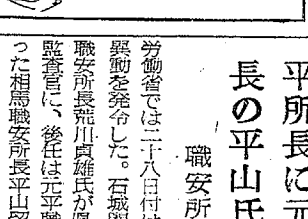 平所長に元
長の平山氏
職安所
労働省では二十八日付
異動を発令した。石城
職安所長荒川貞雄氏が
監査官に、後任は元平職
った相馬職安所長平山